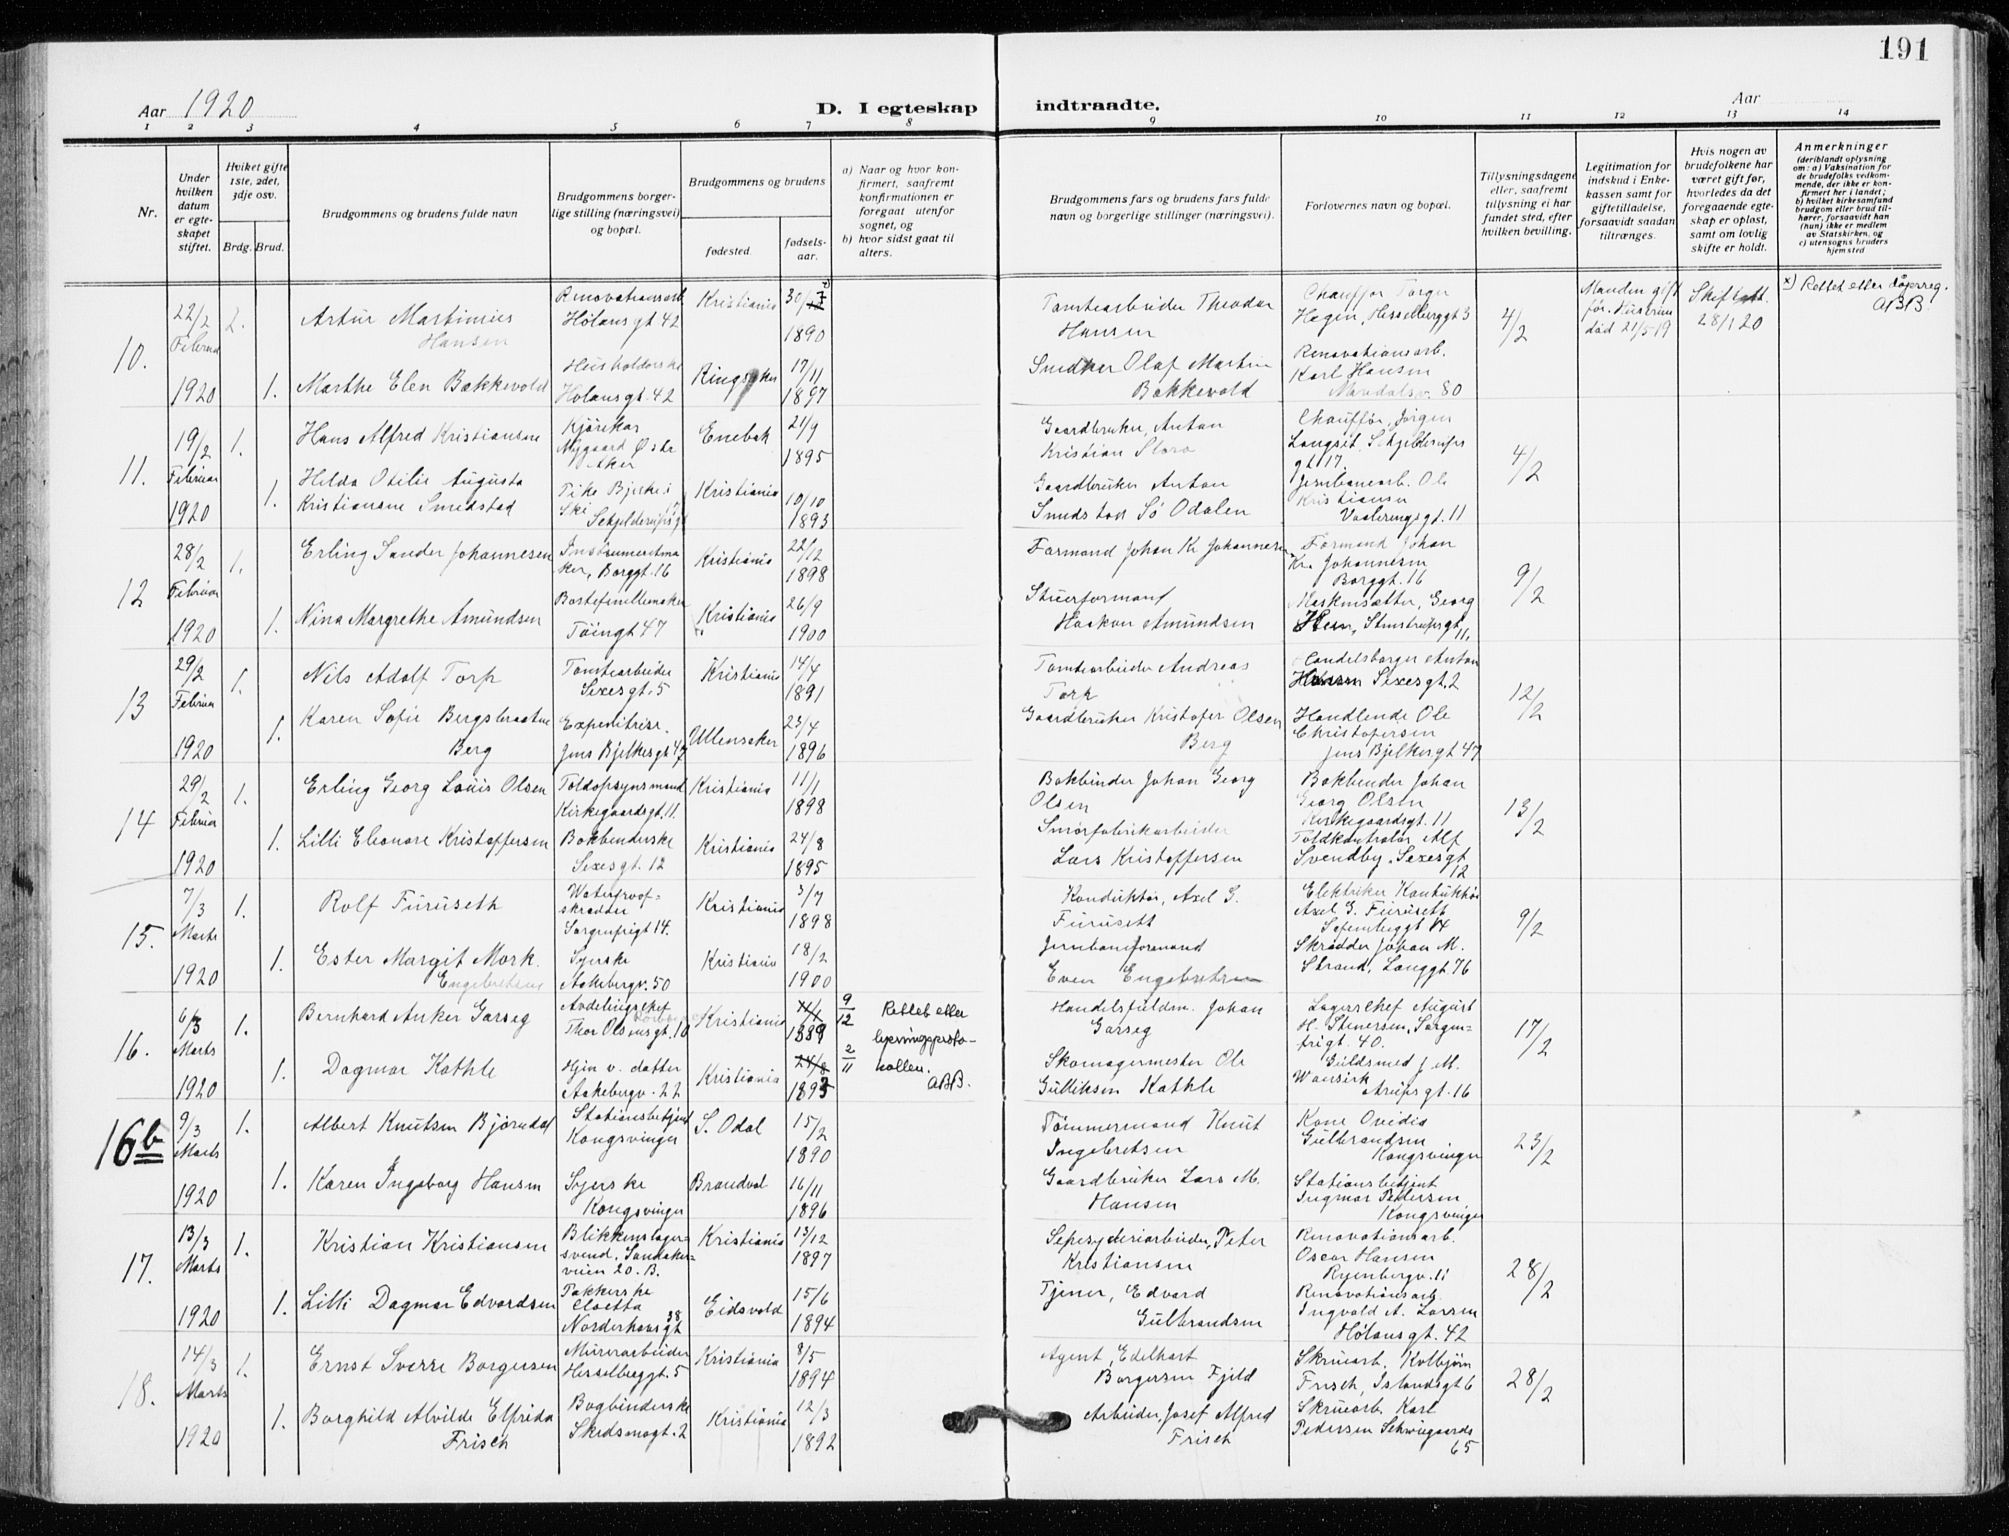 191
Aar 1920
D. I egteskap
indtraadte.
Aar
1 2 3 4 5 6 7 8 9 10 11 12 13 14
Nr.
Under hvilken datum er egteskapet stiftet.
Hvilket gifte 1ste, 2det, 3dje osv.
Brdg. Brud.
Brudgommens og brudens fulde navn
Brudgommens borgerlige stilling (næringsvei) og bopæl.
Brudgommens og brudens
fødested.
fødselsaar.
a) Naar og hvor konfirmert, saafremt konfirmationen er foregaat utenfor sognet, og
b) hvor sidst gaat til alters.
Brudgommens fars og brudens fars fulde navn og borgerlige stillinger (næringsvei).
Forlovernes navn og bopæl.
Tillysningsdagene eller, saafremt tillysning ei har fundet sted, efter hvilken bevilling.
Legitimation for indskud i Enkekassen samt for giftetilladelse, forsaavidt saadan tiltrænges.
Hvis nogen av brudefolkene har været gift før, hvorledes da det foregaaende egteskap er opløst, samt om lovlig skifte er holdt.
Anmerkninger
(deriblandt oplysning om: a) Vaksination for de brudefolks vedkommende, der ikke er konfirmert her i landet; b) hvilket kirkesamfund brudgom eller brud tilhører, forsaavidt han (hun) ikke er medlem av Statskirken, og c) utensogns bruders hjemsted
10.
22/2 Februar 1920
2.
Artur Martinius Hansen
Renovationsarb. Holansgt 42
Kristiania
30/7 1890
Tomtearbeider Theodor Hansen
Chauffør Hesselbergsgt 3
4/2
Manden gift før. Hustrun død 21/5 19
28/1 20
x) Rettet efter dåpsreg. ABB.
1. Marthe Elen Bakkevold
Holansgt. 42
Ringsaker
17/11 1897
Snedker Olaf Martin Bakkevold
Renovationsarb. Karl Hansen 80
11.
19/2 Februar 1920
1.
Hans Alfred Kristiansen
Enebak
21/9 1895
Gaardbruker, Anton Kristian
Chauffør, Jørgen gt 17.
4/2
1. Hilda Otilie Augusta Kristiansen Smedstad
Kristiania
10/10 1893
Gaardbruker Anton Smedstad Sø Odalen
Jernbanearb. Ole Kristiansen Vaalerengsgt. 11
12
28/2 Februar 1920
1.
Erling Sander Johannesen
Instrumentmaker, Borggt. 16
Kristiania
22/12 1898
Formand Johan Kr Johannesen
Formand Johan Kr. Johannesen Borggt. 16
9/2
1. Nina Margrethe Amundsen
Tøiengt 47
Kristiania
26/9 1900
Stuerformand Haakon Amundsen
Maskinsætter, Georg
13
29/2 Februar 1920
1.
Nils Adolf Torp
Tomtearbeider Sexesgt. 5
Kristiania
14/4 1891
Tomtearbeider Andreas Torp
Handelsborger Anton Sexesgt. 2
12/2
1. Karen Sofie Bergsbraaten Berg
Expeditrise. Jens Bjelkesgt 47
Ullensaker
23/4 1896
Gaardbruker Kristofer Olsen Berg
Handlende Ole Christofersen Jens Bjelkesgt 47
14
29/2 Februar 1920
1.
Erling Georg Louis Olsen
Toldopsynsmand Kirkegaardsgt. 11.
Kristiania
11/1 1898
Bokbinder Johan Georg Olsen
Bokbinder Johan Georg Olsen Kirkegaardsgt. 11
13/2
1. Lilli Eleonore Kristoffersen
Bokbinderske Sexesgt. 12
Kristiania
24/8 1895
Smørfabrikarbeider Lars Kristoffersen
Toldkontrolør Alf Svendby. Sexesgt 12
15.
7/3 Marts 1920
1.
Rolf Furuseth
Waterproofskrædder Sorgenfrigt 14.
Kristiania
3/7 1898
Konduktør, Axel G. Furuseth
Elektriker Axel G. Furuseth
9/2
1. Ester Margit Mork. Engebretsen
Syerske Aakebergv. 50
Kristiania
18/2 1900
Jernbaneformand Even Engebretsen
Skrædder Johan M. Strand, Langgt 76
16.
6/3 Marts 1920
1.
Bernhard Anker Garseg
Avdelingschef Thor Olsensgt. 10
Kristiania
1889
9/12
Rettet efter lysningsprotokollen. ABB.
Handelsfuldm. Johan Garseg
Lagerchef August H. Stenersen, Sorgenfrigt. 40.
17/2
1. Dagmar Kathle
Hjm v. datter Aakebergv. 22
Kristiania
1893
2/11
Skomagermester Ole Gulliksen Kathle
Guldsmed J. M. Arupsgt. 16
16b
9/3 Marts 1920
1.
Albert Knutsen Bjørndal
Stationsbetjent Kongsvinger
S. Odal
15/2 1890
Tømmermand Knut Ingebretsen
Kone Ovidia Gulbrandsen Kongsvinger
23/2
1. Karen Ingeborg Hansen
Syerske Kongsvinger
Brandval
16/11 1896
Gaardbruker Lars M. Hansen
Stationsbetjent Ingmar Pedersen Kongsvinger
17.
13/3 Marts 1920
1.
Kristian Kristiansen
Blikkenslagersvend, Sandakerveien 20. B.
Kristiania
13/12 1897
Sepesyderiarbeider, Peter Kristiansen
Renovationsarb. Oscar Hansen Ryenbergv. 11
28/2
1. Lilli Dagmar Edvardsen
Pakkerske Cloetta Norderhovsgt 38
Eidsvold
15/6 1894
Tjener, Edvard Gulbrandsen
Renovationsarb. Ingvald A. Larsen Hølansgt. 42
18.
14/3 Marts 1920
1.
Ernst Sverre Borgersen
Murerarbeider Hesselberggt. 5
Kristiania
8/5 1894
Agent, Edelhart Borgersen Fjeld
Skruearb. Kolbjørn Frisch, Islandsgt 6
28/2
1. Borghild Alvilde Elfrida Frisch
Bogbinderske Skedsmogt. 2
Kristiania
12/3 1892
Arbeider, Josef Alfred Frisch
Skruearb. Karl Pedersen Schweigaards 65